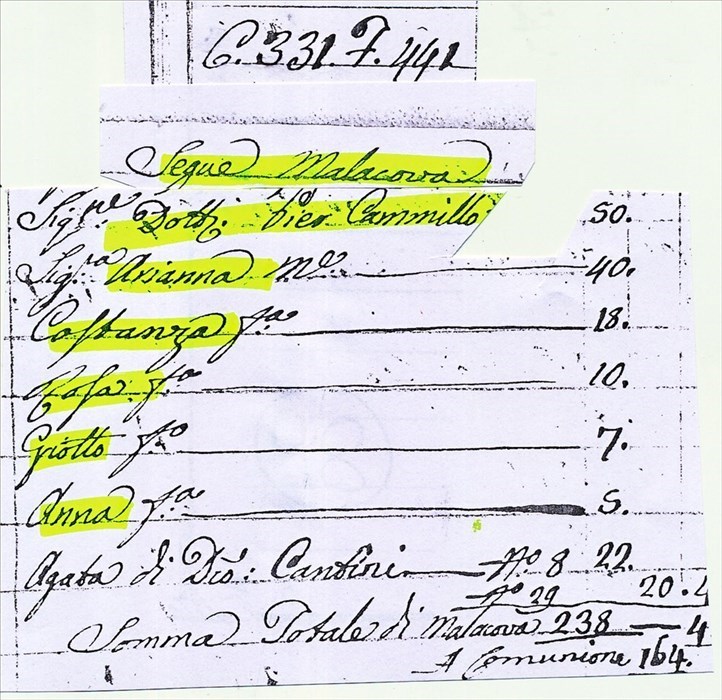 C. 331. F. 441
Segue Malacova
Sig.re Dott. Pier Cammillo 50.
Sig.ra Arianna M.e 40.
Costanza f.a 18.
Rosa f.a 10.
Giotto f.o 7.
Anna f.a 5.
Agata di Dio: Cantini N.o 8 22.
N.o 29 20.4
Somma Totale di Malacova 238 — 4
A Comunione 164.